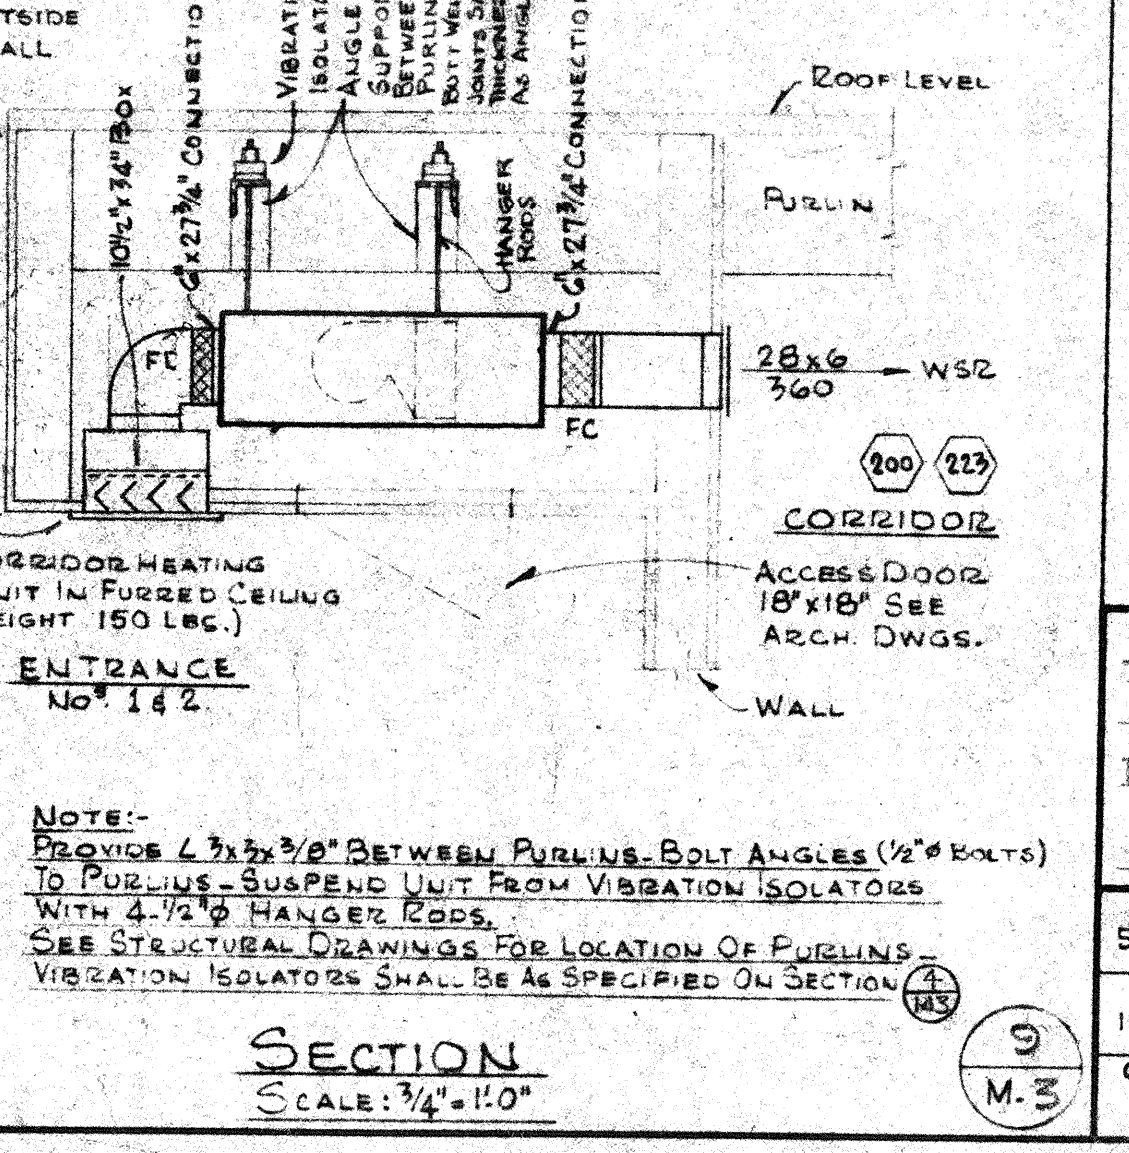 TSIDE
ALL
10½" x 34" BOX
6" x 27¾" CONNECTIO
VIBRATI
ISOLAT
ANGLE
SUPPO
BETWEE
PURLIN
BUTT WEL
JOINTS SA
THICKNE
AS ANGL
HANGER
RODS
6" x 27¾" CONNECTION
ROOF LEVEL
PURLIN
FC
FC
28x6
360
WSR
200
223
CORRIDOR
ACCESS DOOR
18"x18" SEE
ARCH. DWGS.
WALL
RRIDOR HEATING
NIT IN FURRED CEILING
EIGHT 150 LBS.)
ENTRANCE
NOS. 1 & 2.
NOTE:-
PROVIDE L 3x3x3/8" BETWEEN PURLINS-BOLT ANGLES (1/2"ø BOLTS)
TO PURLINS-SUSPEND UNIT FROM VIBRATION ISOLATORS
WITH 4-1/2"ø HANGER RODS.
SEE STRUCTURAL DRAWINGS FOR LOCATION OF PURLINS-
VIBRATION ISOLATORS SHALL BE AS SPECIFIED ON SECTION 4
M3
SECTION
SCALE: 3/4" = 1'-0"
9
M-3